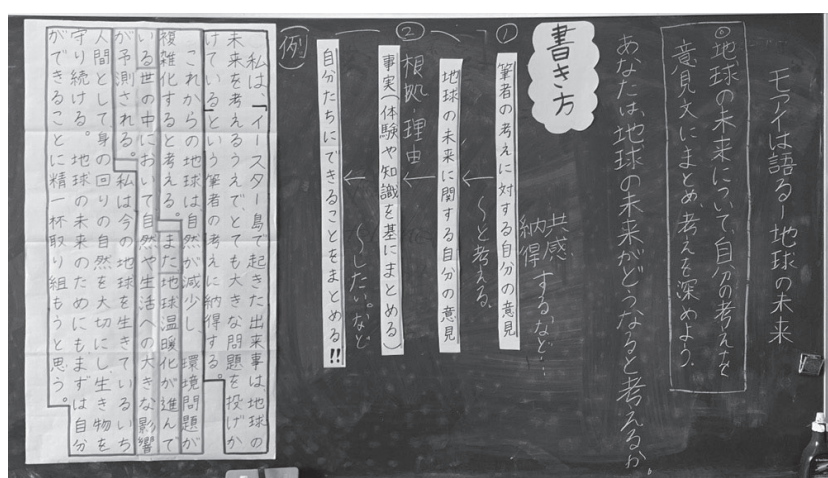 モアイは語る―地球の未来
◎地球の未来について、自分の考えを
意見文にまとめ、考えを深めよう。
あなたは、地球の未来がどうなると考えるか。
書き方
①
筆者の考えに対する自分の意見
共感
納得
する、など…
地球の未来に関する自分の意見
〜と考える。
②
根拠・理由
事実(体験や知識を基にまとめる)
自分たちにできることをまとめる!!
〜したい。など
(例)
私は、「イースター島で起きた出来事は、地球の
未来を考えるうえで、とても大きな問題を投げか
けている」という筆者の考えに納得する。
これからの地球は自然が減少し、環境問題が
複雑化すると考える。また、地球温暖化が進んで
いる世の中において自然や生活への大きな影響
が予測される。私は今の地球を生きているいち
人間として身の回りの自然を大切にし生き物を
守り続ける。地球の未来のためにもまずは自分
ができることに精一杯取り組もうと思う。